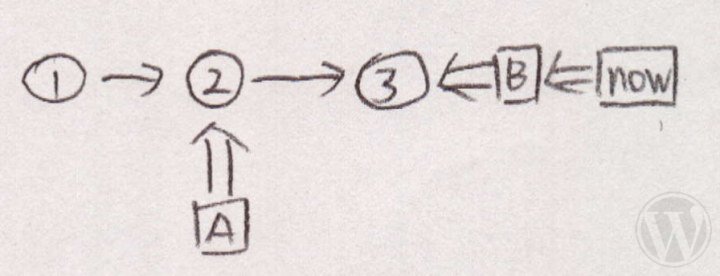 1 2 3 B now
A